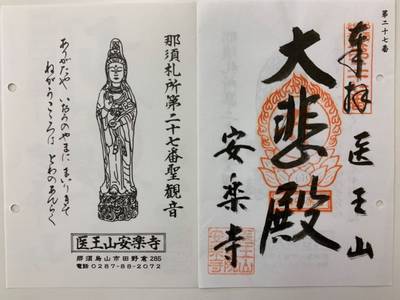 第二十七番
奉拝
医王山
大悲殿
安楽寺
那須札所第二十七番聖観音
ありがたや いおうのやまに まいりきて
ねがうこころは とわのあんらく
医王山安楽寺
那須烏山市田野倉285
電話0287-88-2072